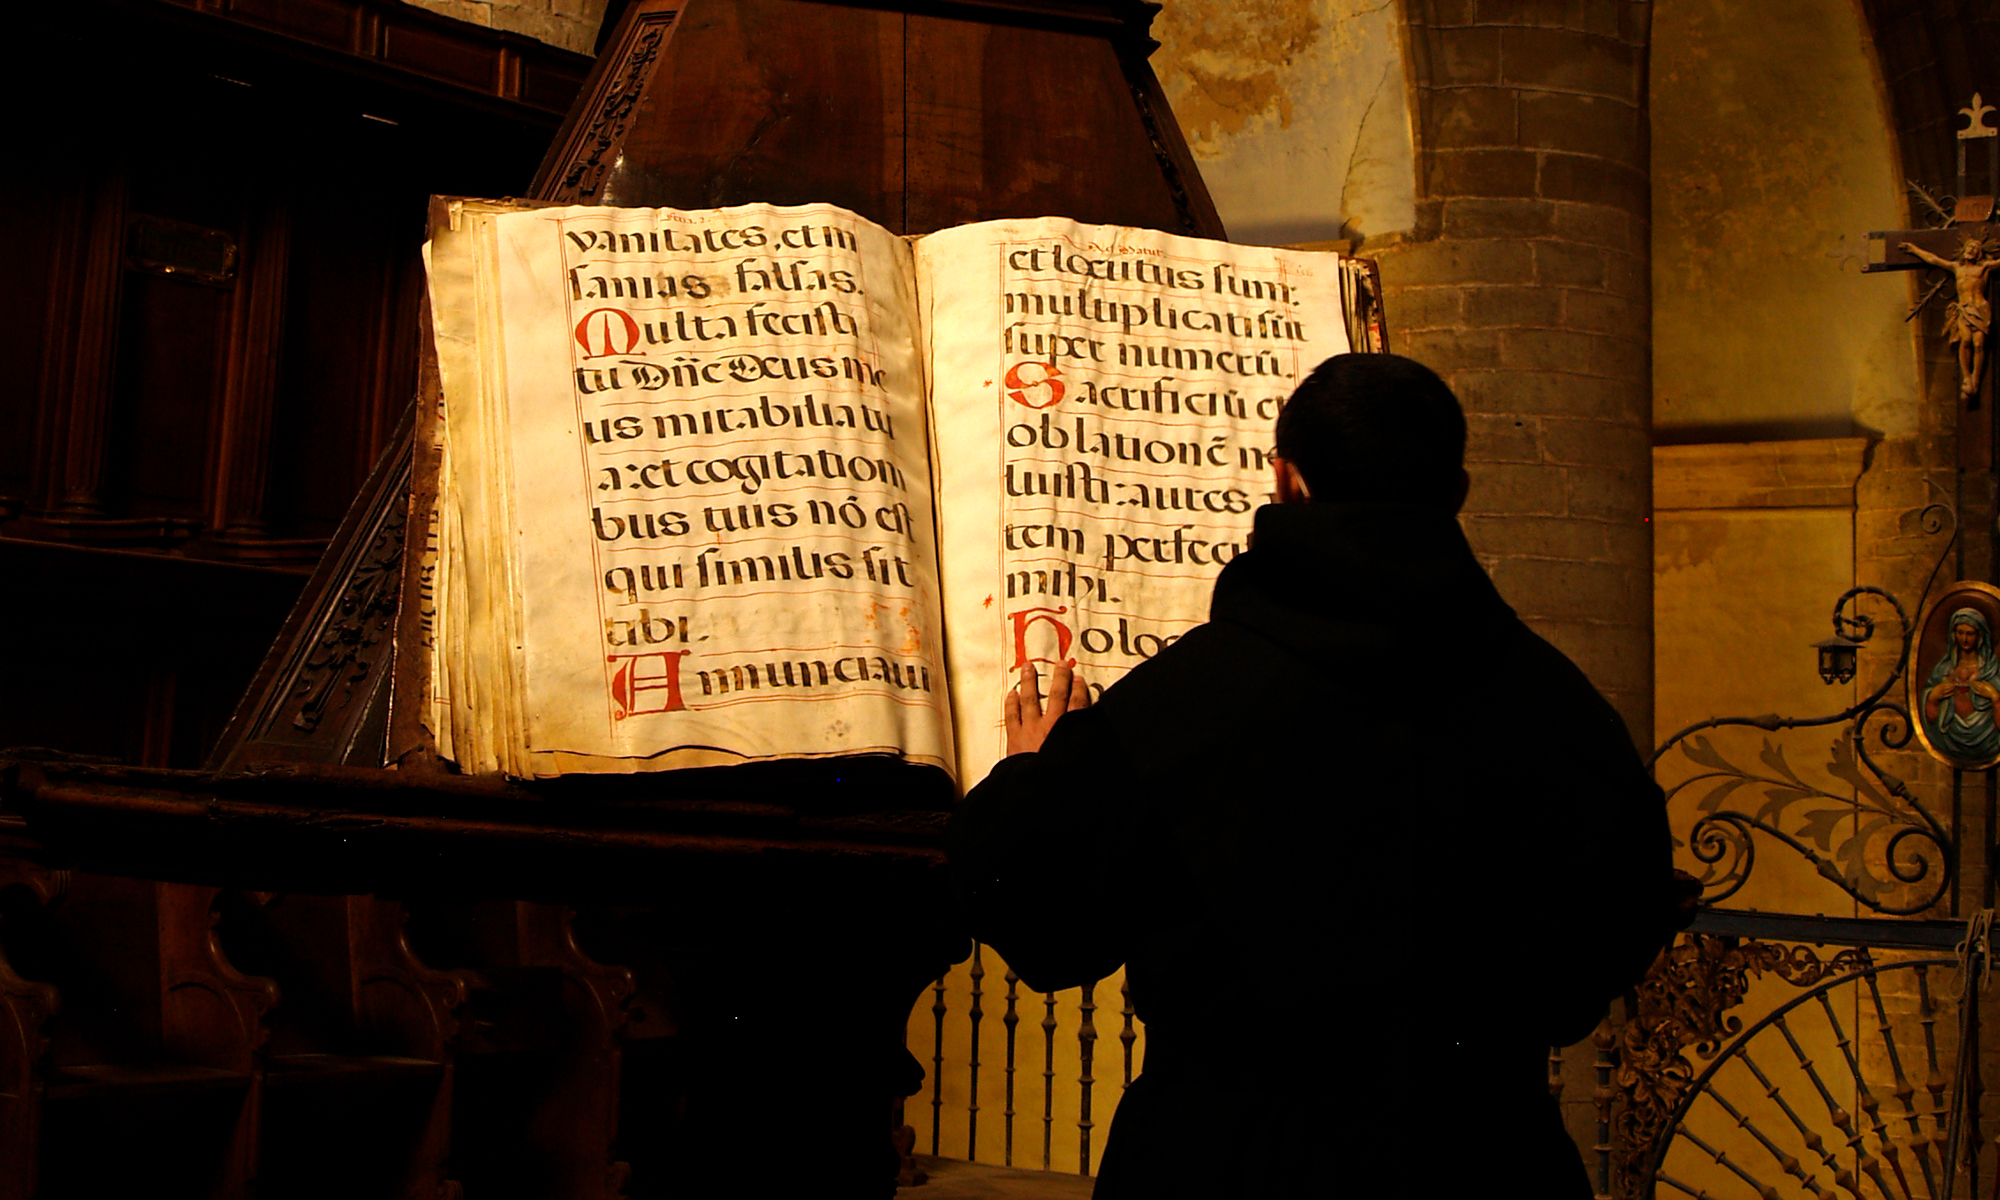 vanitates, et in
sanias falsas.
Multa fecisti
tu Dñe Deus me
us mirabilia tu
a: et cogitation
bus tuis nõ est
qui similis sit
tibi.
Annunciaui
Ad Matut.
et locutus sum:
multiplicati sũt
super numerũ.
Sacrificiũ et
oblationẽ no
luisti: aures
tem perfeci
mihi.
Holoc